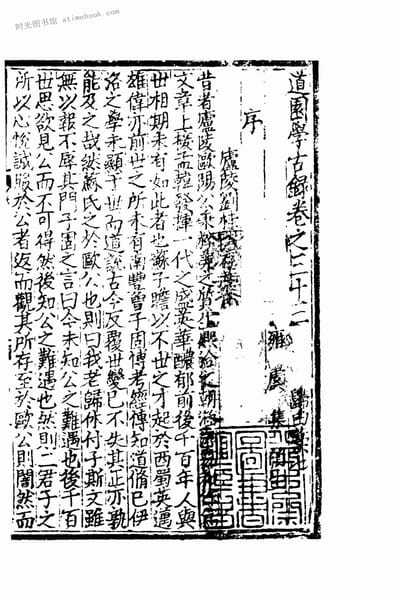 时光图书馆 atimebook.com
道園學古錄卷之三十三
雍虞集
序
廬陵劉桂隱存藁序
昔者廬陵歐陽公秉粹美之質生熙洽之朝
文章上接孟韓發揮一代之盛英華醲郁前後千百年人與
世相期未有如此者也蘇子瞻以不世之才起於西蜀英邁
雄偉亦前世之所未有南豐曾子固博考經傳知道脩已伊
洛之學未顯于世而道說古今反覆世變已不失其正亦孰
能及之哉然蘇氏之於歐公也則曰我老歸休付子斯文雖
無以報不辱其門子固之言曰今未知公之難遇也後千百
世思欲見公而不可得然後知公之難遇也然則二君子之
所以心悅誠服於公者返而觀其所存至於歐公則闇然而